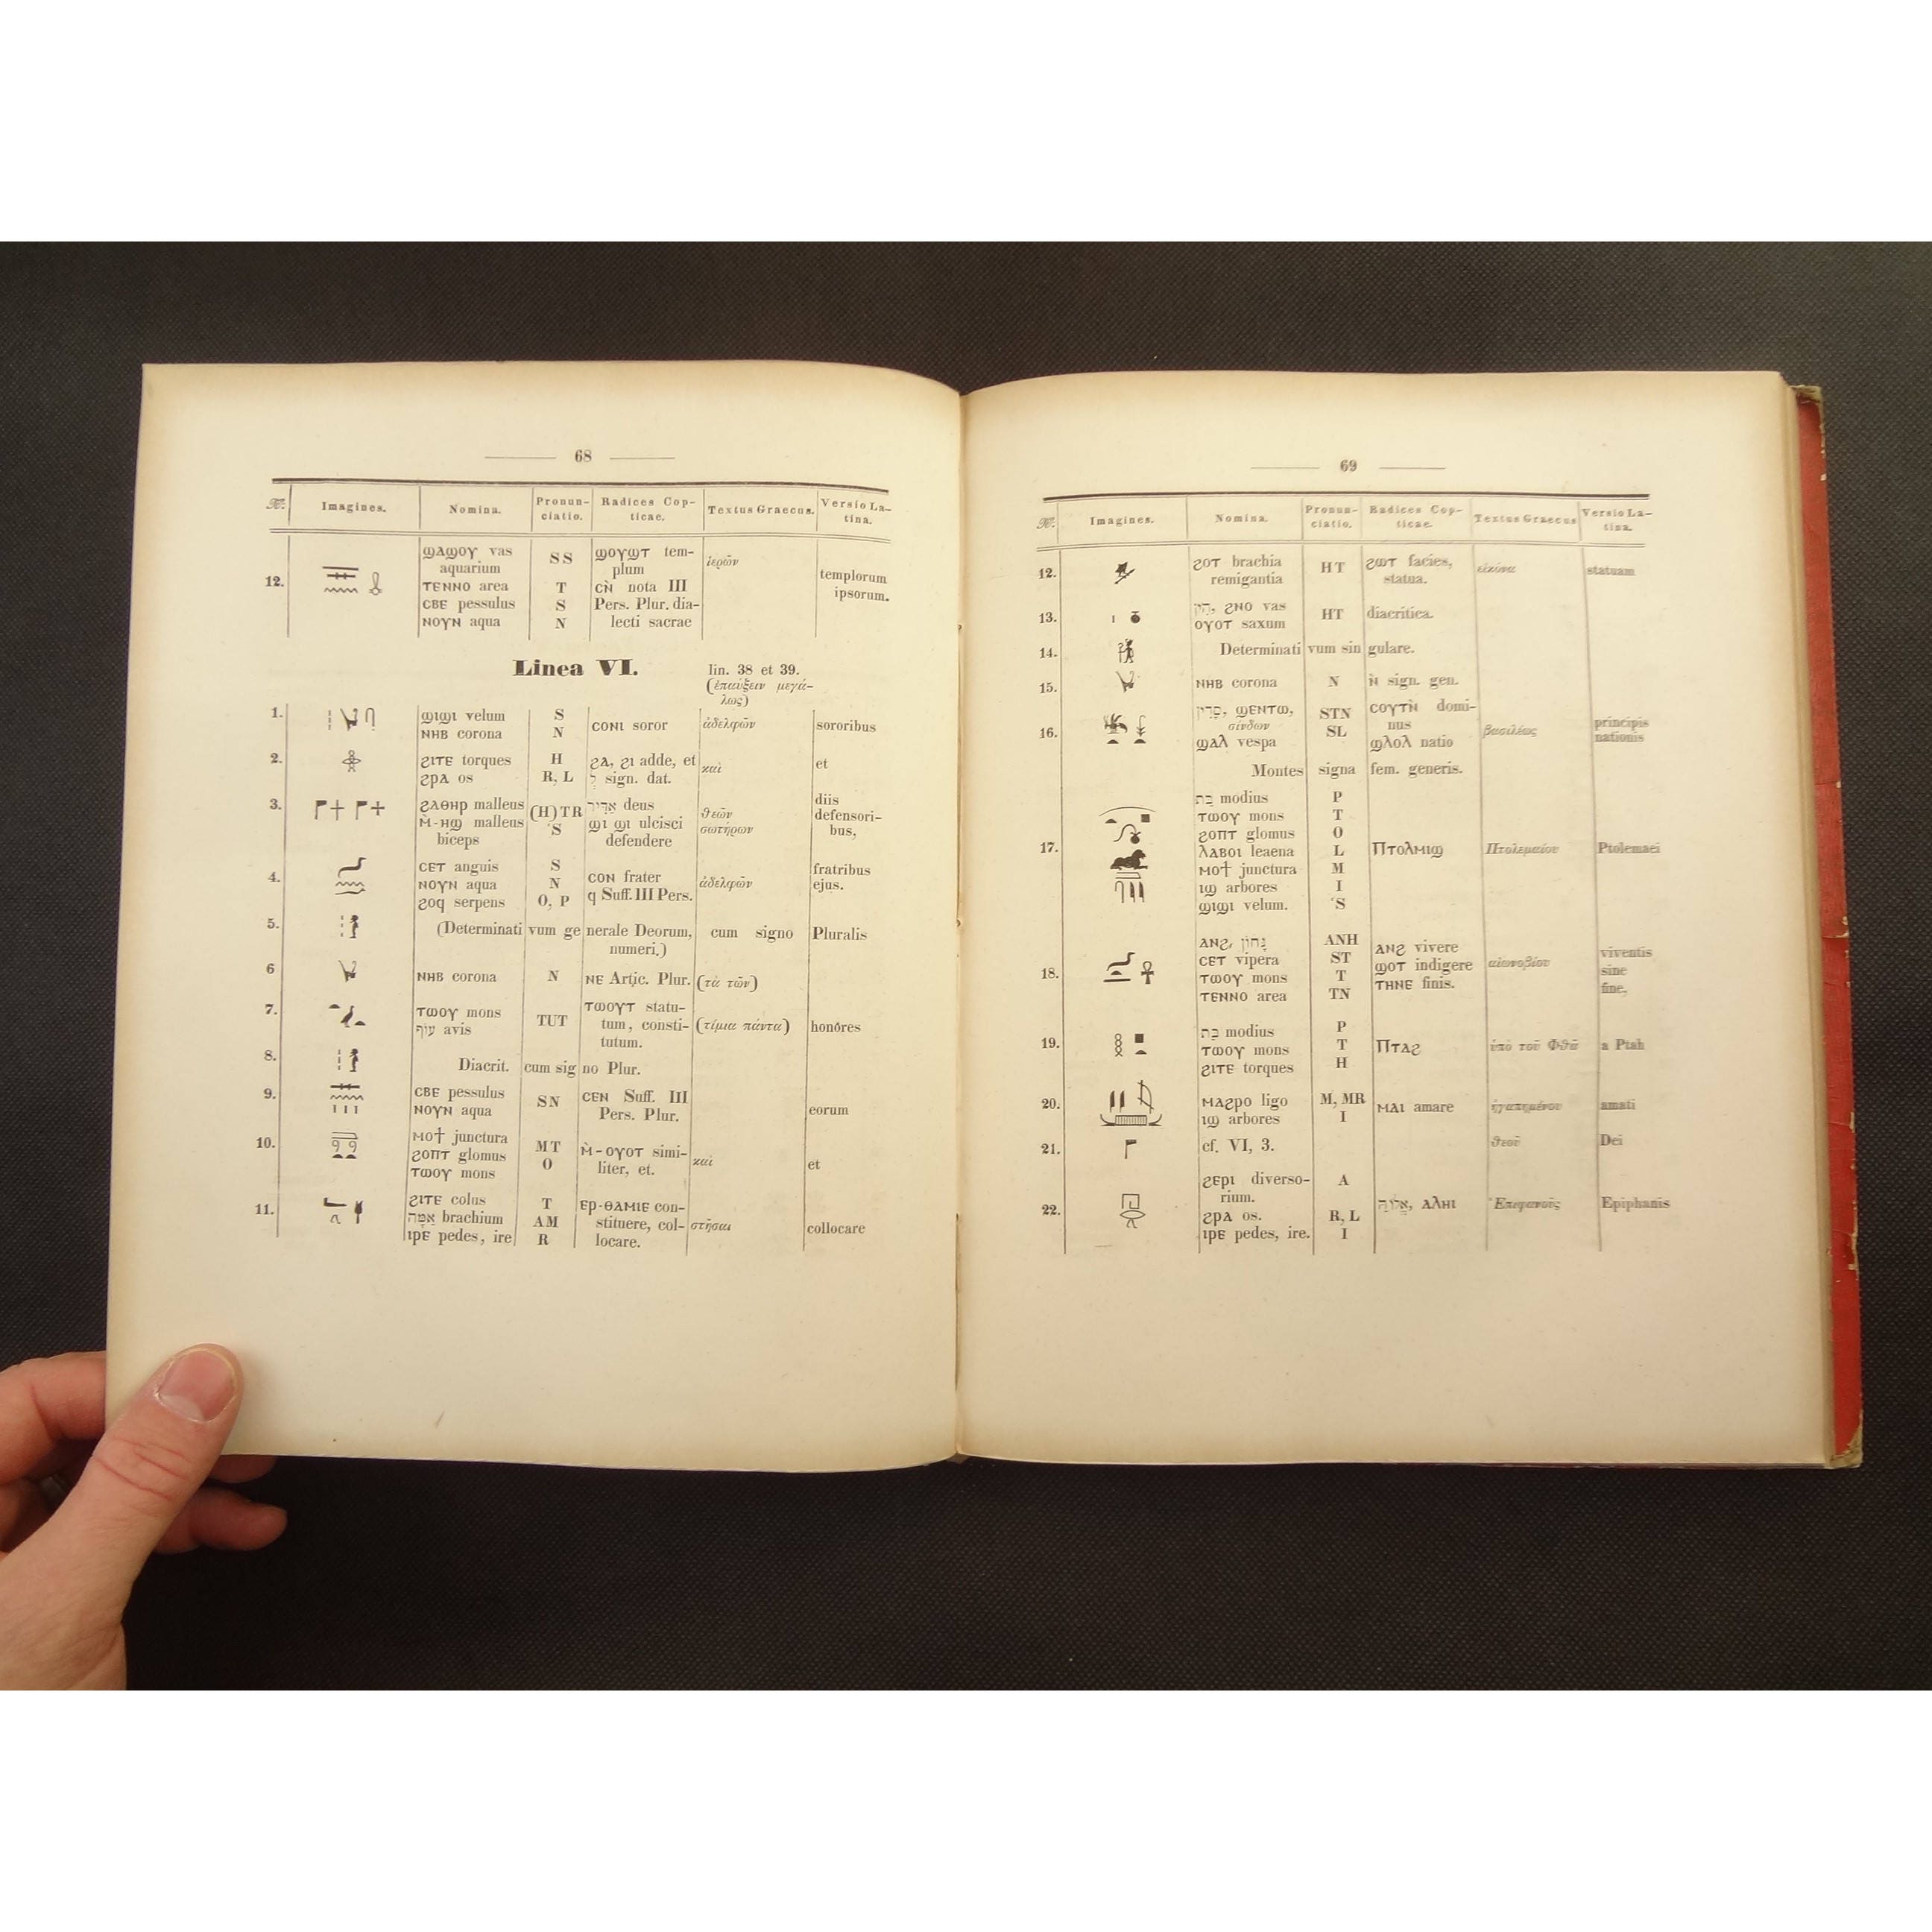 68
№. Imagines. Nomina. Pronunciatio. Radices Copticae. Textus Graecus. Versio Latina.
12. ϣⲁϣⲟⲩ vas aquarium SS ϣⲟⲩϣⲧ templum ἱερῶν templorum ipsorum.
ⲧⲉⲛⲛⲟ area T ⲥⲛ̀ nota III
ⲥⲃⲉ pessulus S Pers. Plur. dia-
ⲛⲟⲩⲛ aqua N lecti sacrae
Linea VI. lin. 38 et 39.
(ἐπαύξειν μεγά-
λως)
1. ϣⲓϣⲓ velum S ⲥⲟⲛⲓ soror ἀδελφῶν sororibus
ⲛⲏⲃ corona N
2. ϩⲓⲧⲉ torques H ϩⲁ, ϩⲓ adde, et καὶ et
ϩⲣⲁ os R, L לְ sign. dat.
3. ϩⲁⲑⲏⲣ malleus (H)TR אַדִּיר deus θεῶν diis
ⲙ̀-ⲏϣ malleus biceps ´S ϣⲓ ϣⲓ ulcisci defendere σωτήρων defensoribus,
4. ⲥⲉⲧ anguis S ⲥⲟⲛ frater ἀδελφῶν fratribus
ⲛⲟⲩⲛ aqua N ϥ Suff. III Pers. ejus.
ϩⲟϥ serpens O, P
5. (Determinativum generale Deorum, cum signo Pluralis
numeri.)
6 ⲛⲏⲃ corona N ⲛⲉ Artic. Plur. (τὰ τῶν)
7. ⲧⲱⲟⲩ mons TUT ⲧⲱⲟⲩⲧ statutum, constitutum. (τίμια πάντα) honores
עוֹף avis
8. Diacrit. cum signo Plur.
9. ⲥⲃⲉ pessulus SN ⲥⲉⲛ Suff. III eorum
ⲛⲟⲩⲛ aqua Pers. Plur.
10. ⲙⲟϯ junctura MT ⲙ̀-ⲟⲩⲟⲧ similiter, et. καὶ et
ϩⲟⲡⲧ glomus O
ⲧⲱⲟⲩ mons
11. ϩⲓⲧⲉ colus T ⲉⲣ-ⲑⲁⲙⲓⲉ con-
אַמָּה brachium AM stituere, col- στῆσαι collocare
ⲓⲣⲉ pedes, ire R locare.
69
№. Imagines. Nomina. Pronunciatio. Radices Copticae. Textus Graecus Versio Latina.
12. ϩⲟⲧ brachia remigantia HT ϩⲱⲧ facies, statua. εἰκόνα statuam
13. הִין, ϩⲛⲟ vas HT diacritica.
ⲟⲩⲟⲧ saxum
14. Determinativum singulare.
15. ⲛⲏⲃ corona N ⲛ̀ sign. gen.
16. סָדִין, ϣⲉⲛⲧⲱ, STN ⲥⲟⲩⲧⲛ̀ dominus βασιλέως principis
σίνδων SL
ϣⲁⲗ vespa ϣⲗⲟⲗ natio nationis
Montes signa fem. generis.
17. בַּת modius P
ⲧⲱⲟⲩ mons T
ϩⲟⲡⲧ glomus O
ⲗⲁⲃⲟⲓ leaena L ⲡⲧⲟⲗⲙⲓϣ Πτολεμαίου Ptolemaei
ⲙⲟϯ junctura M
ⲓϣ arbores I
ϣⲓϣⲓ velum. ´S
18. ⲁⲛϩ, גָּחוֹן ANH ⲁⲛϩ vivere viventis
ⲥⲉⲧ vipera ST ϣⲟⲧ indigere αἰωνοβίου sine
ⲧⲱⲟⲩ mons T ⲧⲏⲛⲉ finis. fine,
ⲧⲉⲛⲛⲟ area TN
19. בַּת modius P
ⲧⲱⲟⲩ mons T ⲡⲧⲁϩ ὑπὸ τοῦ Φθᾶ a Ptah
ϩⲓⲧⲉ torques H
20. ⲙⲁϩⲣⲟ ligo M, MR ⲙⲁⲓ amare ἠγαπημένου amati
ⲓϣ arbores I
21. cf. VI, 3. θεοῦ Dei
22. ϩⲉⲣⲓ diversorium. A
ϩⲣⲁ os. R, L אֱלוֹהַּ, ⲁⲗⲏⲓ Ἐπιφανοῦς Epiphanis
ⲓⲣⲉ pedes, ire. I